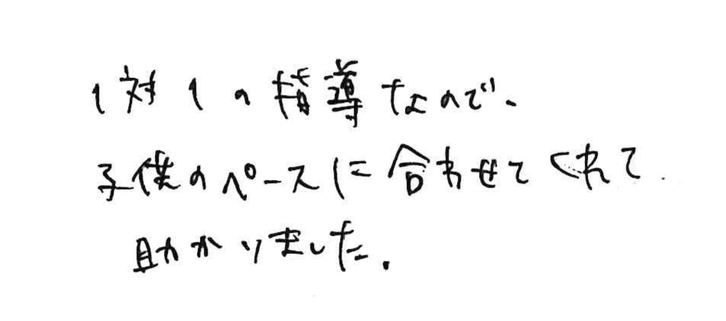 1対1の指導なので、
子供のペースに合わせてくれて
助かりました。